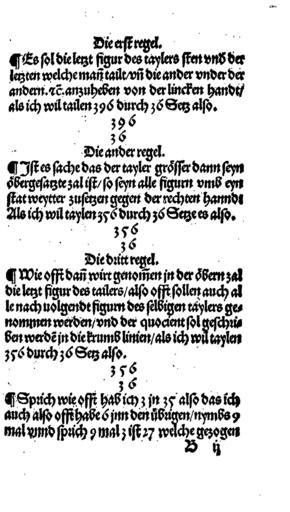 Die erst regel.
¶ Es sol die letzt figur des taylers sten vnd der
letzten welche man̄ tailt/vn̄ die ander vnder der
andern. ⁊c. anzuheben von der lincken handt/
als ich wil tailen 396 durch 36 Setz also.
396
36
Die ander regel.
¶ Ist es sache das der tayler grösser dann seyn
öbergesatzte zal ist/so seyn alle figurn vmb eyn
stat weytter zusetzen gegen der rechten hanndt
Als ich wil taylen 356 durch 36 Setze es also.
356
36
Die dritt regel.
¶ Wie offt dan̄ wirt genom̄en in der öbern zal
die letzt figur des tailers/also offt sollen auch al
le nach uolgendt figurn des selbigen taylers ge-
nommen werden/vnd der quocient sol geschri-
ben werdē in die krumb linien/als ich wil taylen
356 durch 36 Setz also.
356
36
¶ Sprich wie offt hab ich 3 in 35 also das ich
auch also offt habe 6 inn den übrigen/nymbs 9
mal vnnd sprich 9 mal 3 ist 27 welche gezogen
B ij